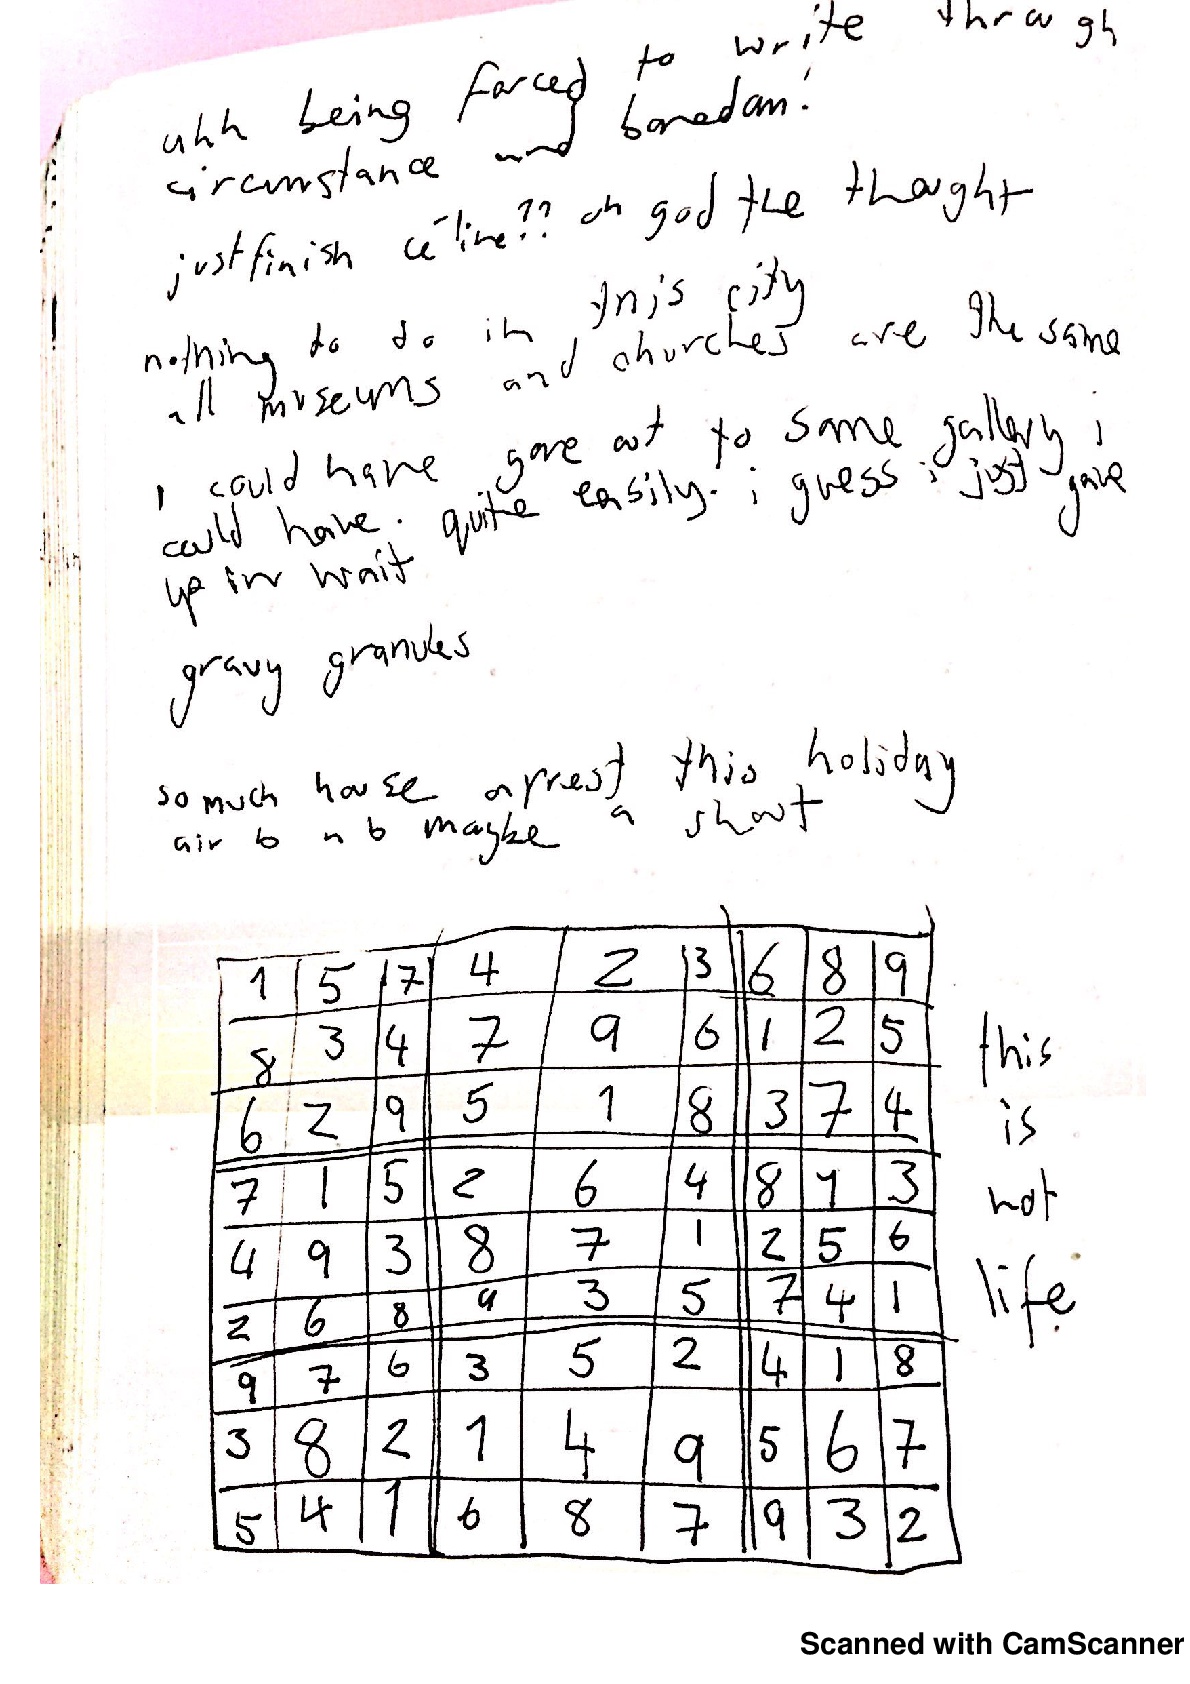 uhh being forced to write through
circumstance and boredom!
just finish céline?? oh god the thought
nothing to do in this city
all museums and churches are the same
i could have gone out to some gallery i
could have. quite easily. i guess i just gave
up in wait
gravy granules
so much house arrest this holiday
air b n b maybe a shout
1 5 7 4 2 3 6 8 9
8 3 4 7 9 6 1 2 5
6 2 9 5 1 8 3 7 4
7 1 5 2 6 4 8 9 3
4 9 3 8 7 1 2 5 6
2 6 8 9 3 5 7 4 1
9 7 6 3 5 2 4 1 8
3 8 2 1 4 9 5 6 7
5 4 1 6 8 7 9 3 2
this
is
not
life.
Scanned with CamScanner